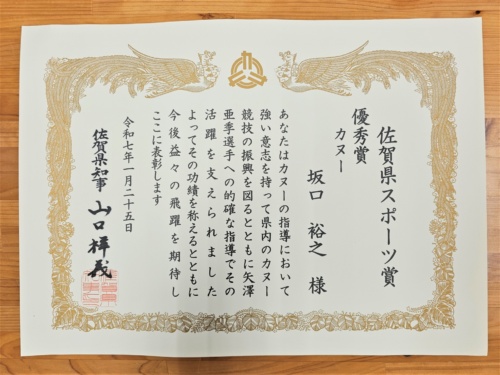 佐賀県スポーツ賞
優秀賞
カヌー
坂口 裕之 様
あなたはカヌーの指導において
強い意志を持って県内のカヌー
競技の振興を図るとともに矢澤
亜季選手への的確な指導でその
活躍を支えられました
よってその功績を称えるとともに
今後益々の飛躍を期待し
ここに表彰します
令和七年一月二十五日
佐賀県知事 山口祥義